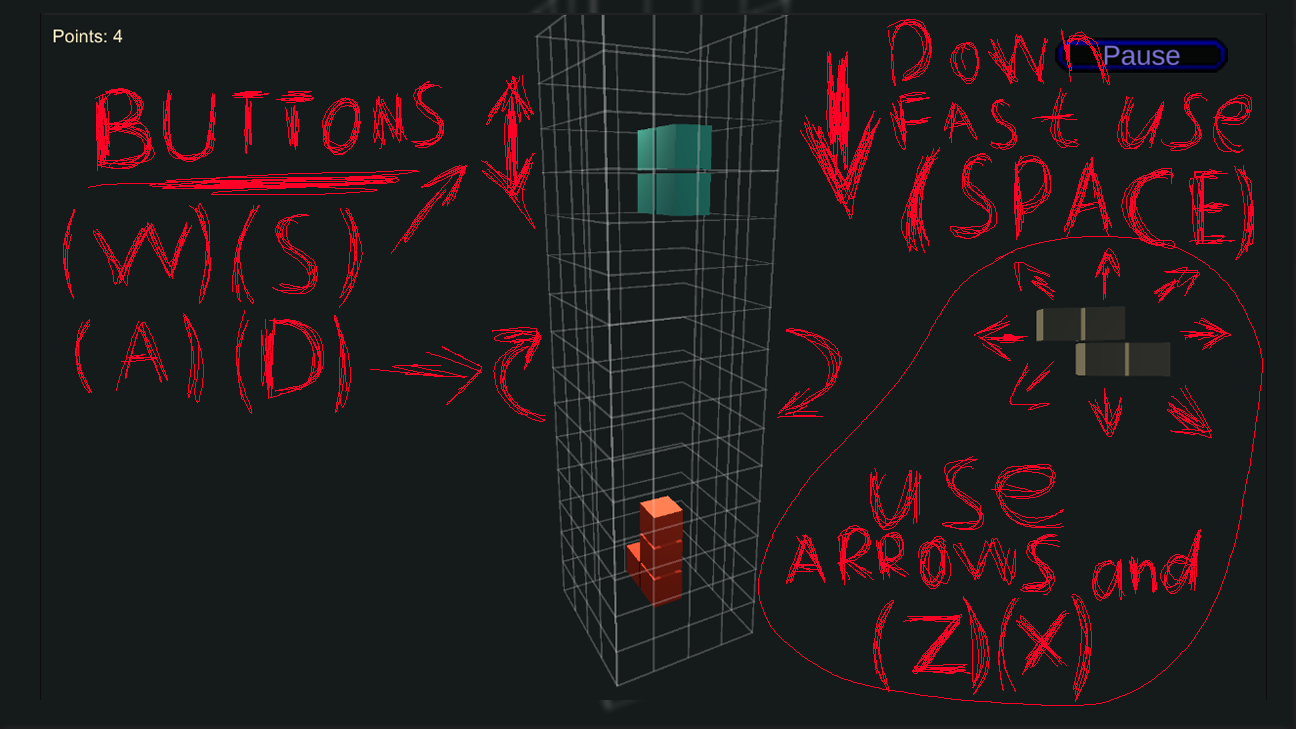 Points: 4
Pause
BUTTONS
(W)(S)
(A)(D)
DOWN
FAST use
(SPACE)
USE
ARROWS and
(Z)(X)